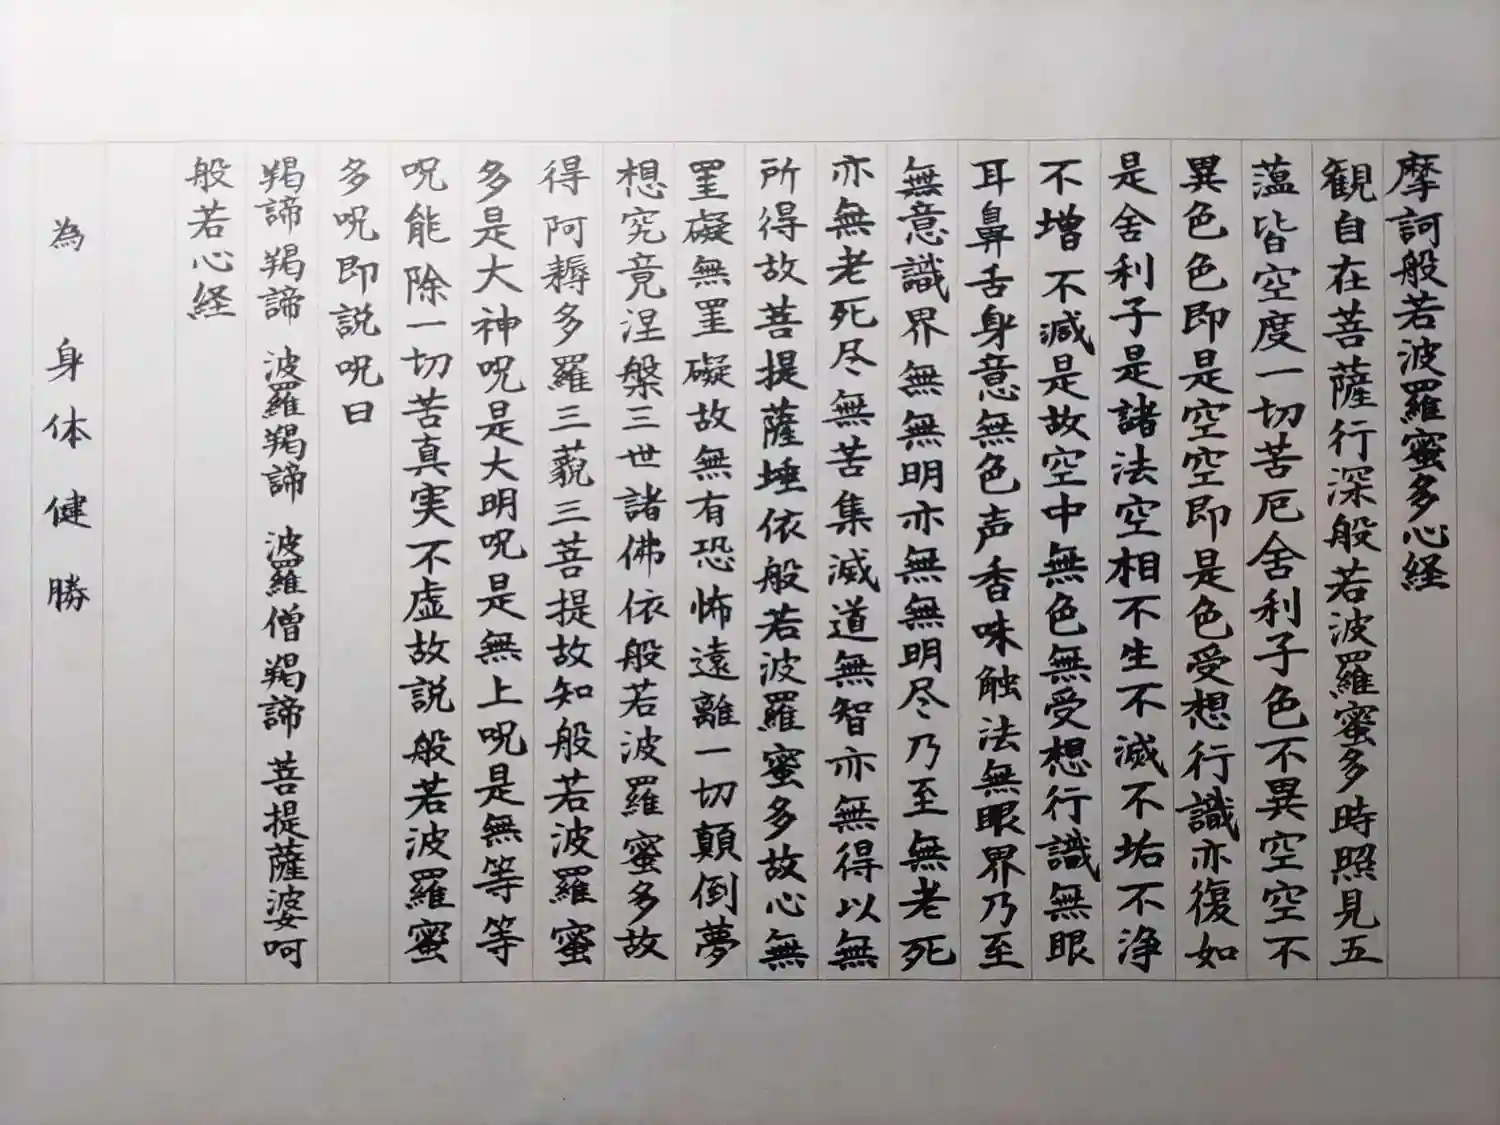 摩訶般若波羅蜜多心経
観自在菩薩行深般若波羅蜜多時照見五
薀皆空度一切苦厄舍利子色不異空空不
異色色即是空空即是色受想行識亦復如
是舍利子是諸法空相不生不滅不垢不浄
不増不減是故空中無色無受想行識無眼
耳鼻舌身意無色声香味触法無眼界乃至
無意識界無無明亦無無明尽乃至無老死
亦無老死尽無苦集滅道無智亦無得以無
所得故菩提薩埵依般若波羅蜜多故心無
罣礙無罣礙故無有恐怖遠離一切顛倒夢
想究竟涅槃三世諸佛依般若波羅蜜多故
得阿耨多羅三藐三菩提故知般若波羅蜜
多是大神呪是大明呪是無上呪是無等等
呪能除一切苦真実不虚故説般若波羅蜜
多呪即説呪曰
羯諦羯諦 波羅羯諦 波羅僧羯諦 菩提薩婆呵
般若心経
為 身体健勝